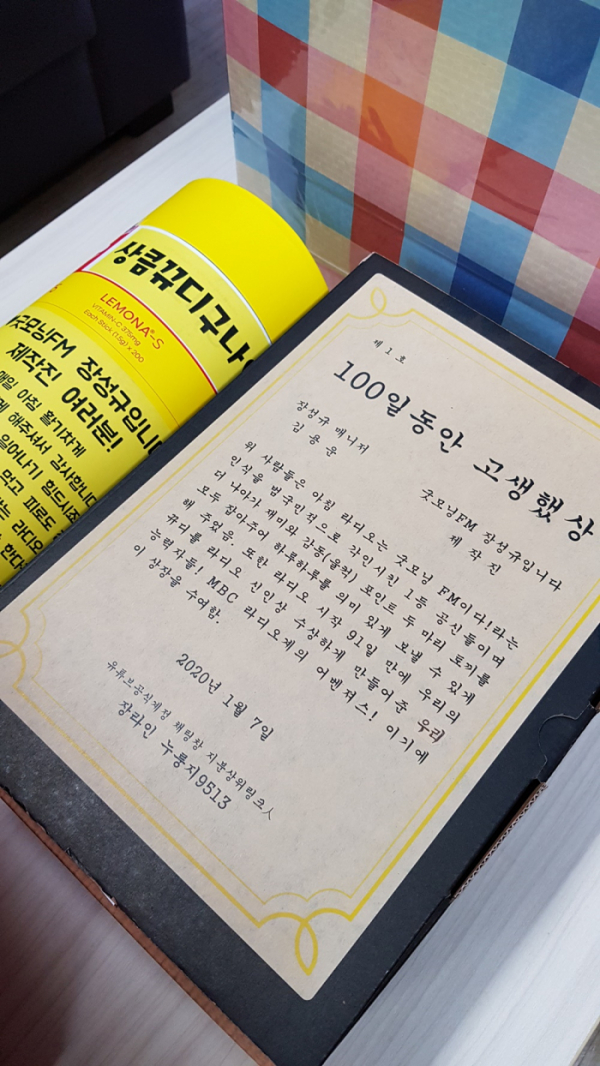 상큼뀨디구나
LEMONA®-S
VITAMIN-C 375mg
Each Stick (1.5g) x 200
굿모닝FM 장성규입니
제작진 여러분!
매일 아침 활기차게
게 해주셔서 감사합니다
일어나기 힘드시죠
먹고 피로도
는 라디오
한다
제 1 호
100일동안 고생했상
장성규 매니저
김 용 운
굿모닝FM 장성규입니다
제 작 진
위 사람들은 아침 라디오는 굿모닝 FM이다!라는
인식을 범국민적으로 각인시킨 1등 공신들이며
더 나아가 재미와 감동(울컥) 포인트 두 마리 토끼를
모두 잡아주어 하루하루를 의미 있게 보낼 수 있게
해 주었음. 또한 라디오 시작 91일 만에 우리의
뀨디를 라디오 신인상 수상하게 만들어준 우리
능력자들! MBC 라디오계의 어벤져스! 이기에
이 상장을 수여함.
2020년 1월 7일
유튜브공식계정 채팅창 지분상위링크人
장라인 누룽지9513